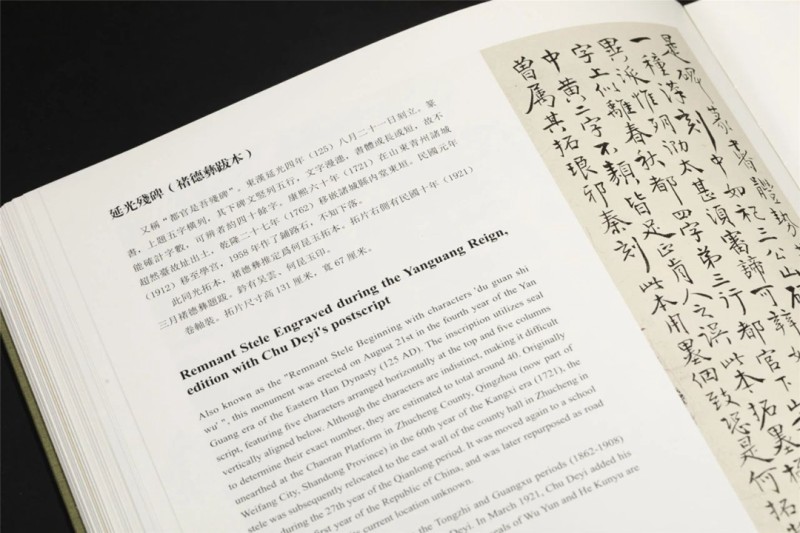 延光殘碑（褚德彝跋本）
又稱“都官是吾殘碑”。東漢延光四年（125）八月二十一日刻立。篆
書，上題五字橫列，其下碑文竪列五行，文字漫漶，書體或長或短，故不
能確計字數，可辨者約四十餘字。康熙六十年（1721）在山東青州諸城
超然臺故址出土，乾隆二十七年（1762）移嵌諸城縣内堂東垣。民國元年
（1912）移至學宫，1958年作了鋪路石，不知下落。
此同光拓本，褚德彝推定爲何昆玉拓本。拓片右側有民國十年（1921）
三月褚德彝題跋。鈐有吴雲、何昆玉印。
卷軸裝。拓片尺寸高131厘米，寬67厘米。
Remnant Stele Engraved during the Yanguang Reign,
edition with Chu Deyi's postscript
Also known as the "Remnant Stele Beginning with characters 'du guan shi
wu' ", this monument was erected on August 21st in the fourth year of the Yan
Guang era of the Eastern Han Dynasty (125 AD). The inscription utilizes seal
script, featuring five characters arranged horizontally at the top and five columns
vertically aligned below. Although the characters are indistinct, making it difficult
to determine their exact number, they are estimated to total around 40. Originally
unearthed at the Chaoran Platform in Zhucheng County, Qingzhou (now part of
Weifang City, Shandong Province) in the 60th year of the Kangxi era (1721), the
stele was subsequently relocated to the east wall of the county hall in Zhucheng in
during the 27th year of the Qianlong period. It was moved again to a school
first year of the Republic of China, and was later repurposed as road
its current location unknown.
the Tongzhi and Guangxu periods (1862-1908)
Deyi. In March 1921, Chu Deyi added his
seals of Wu Yun and He Kunyu are
是碑篆書體勢
一種漢刻中如祀三公山
異派惟泐太甚須審諦可辨官下
字上似離春秋都四字第三行都
中黄二字不類皆足正肯人之誤此本拓墨
曽属其拓琅邪秦刻此本用墨個致恐是何拓